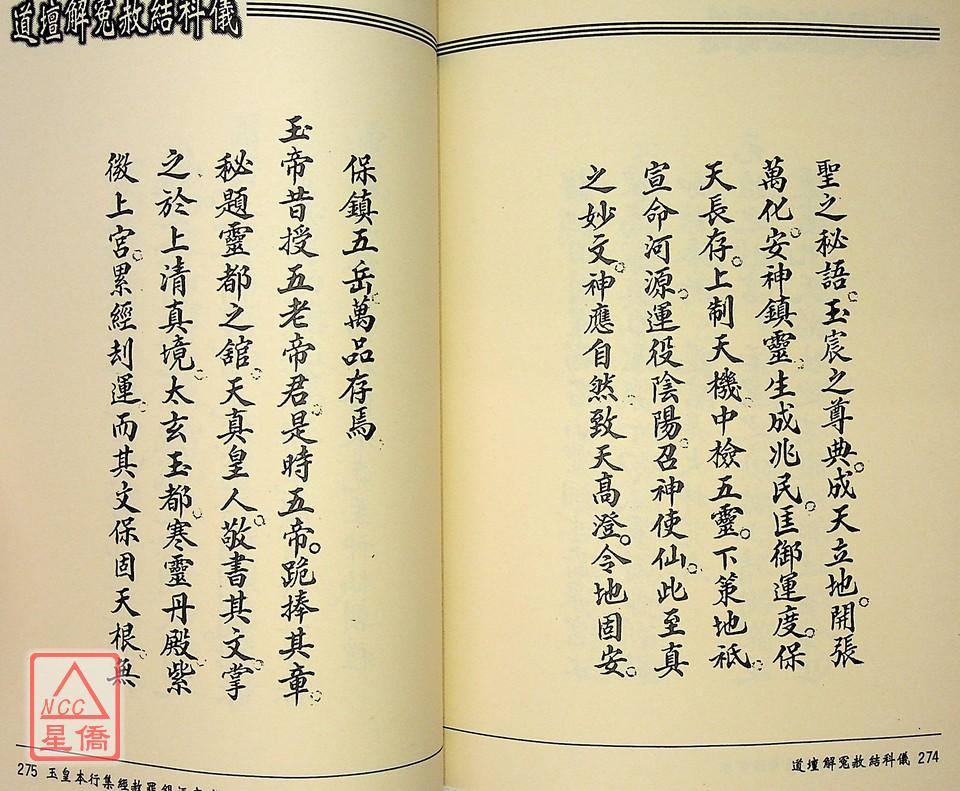 道壇解冤赦結科儀
聖之秘語。玉宸之尊典。成天立地。開張
萬化。安神鎮靈。生成兆民。匡御運度。保
天長存。上制天機。中檢五靈。下策地祇。
宣命河源。運役陰陽。召神使仙。此至真
之妙文。神應自然。致天高澄。令地固安。
道壇解冤赦結科儀 274
保鎮五岳。萬品存焉。
玉帝昔授五老帝君。是時五帝。跪捧其章。
秘題靈都之舘。天真皇人。敬書其文。掌
之於上清真境。太玄玉都。寒靈丹殿。紫
微上宮。累經刦運。而其文保固天根。無
275 玉皇本行集經赦罪
NCC
星僑